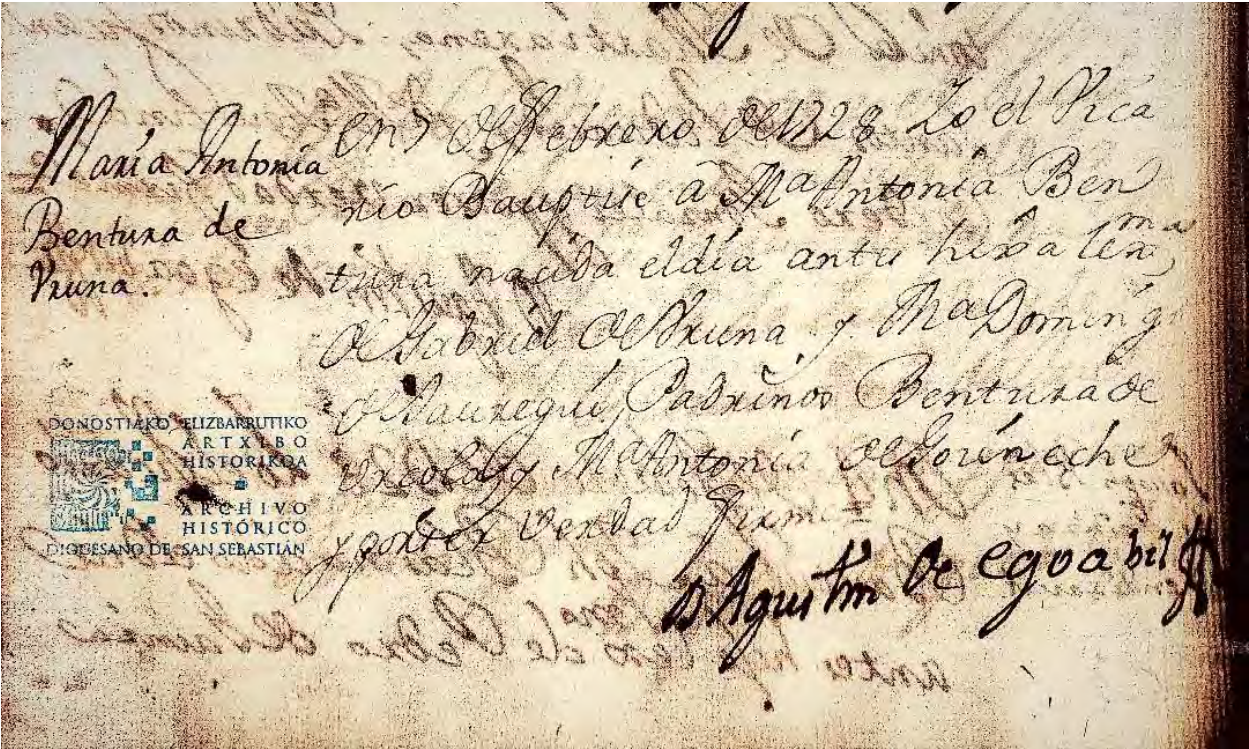 María Antonia
Bentura de
Yruna.
en 7 de Febrero de 1728 Yo el Vica
rio Bauptiie â Mª Antonia Ben
tura nacida el dia antes hixa lexma
de Gabriel de Yruna y Mª Doming
de Jauregui, Padrinos Bentura de
Urcola y Mª Antonia de Goyneche
y por ser Verdad firme
D Agustin de egoabil
DONOSTIAKO ELIZBARRUTIKO
ARTXIBO
HISTORIKOA
ARCHIVO
HISTÓRICO
DIOCESANO DE SAN SEBASTIÁN